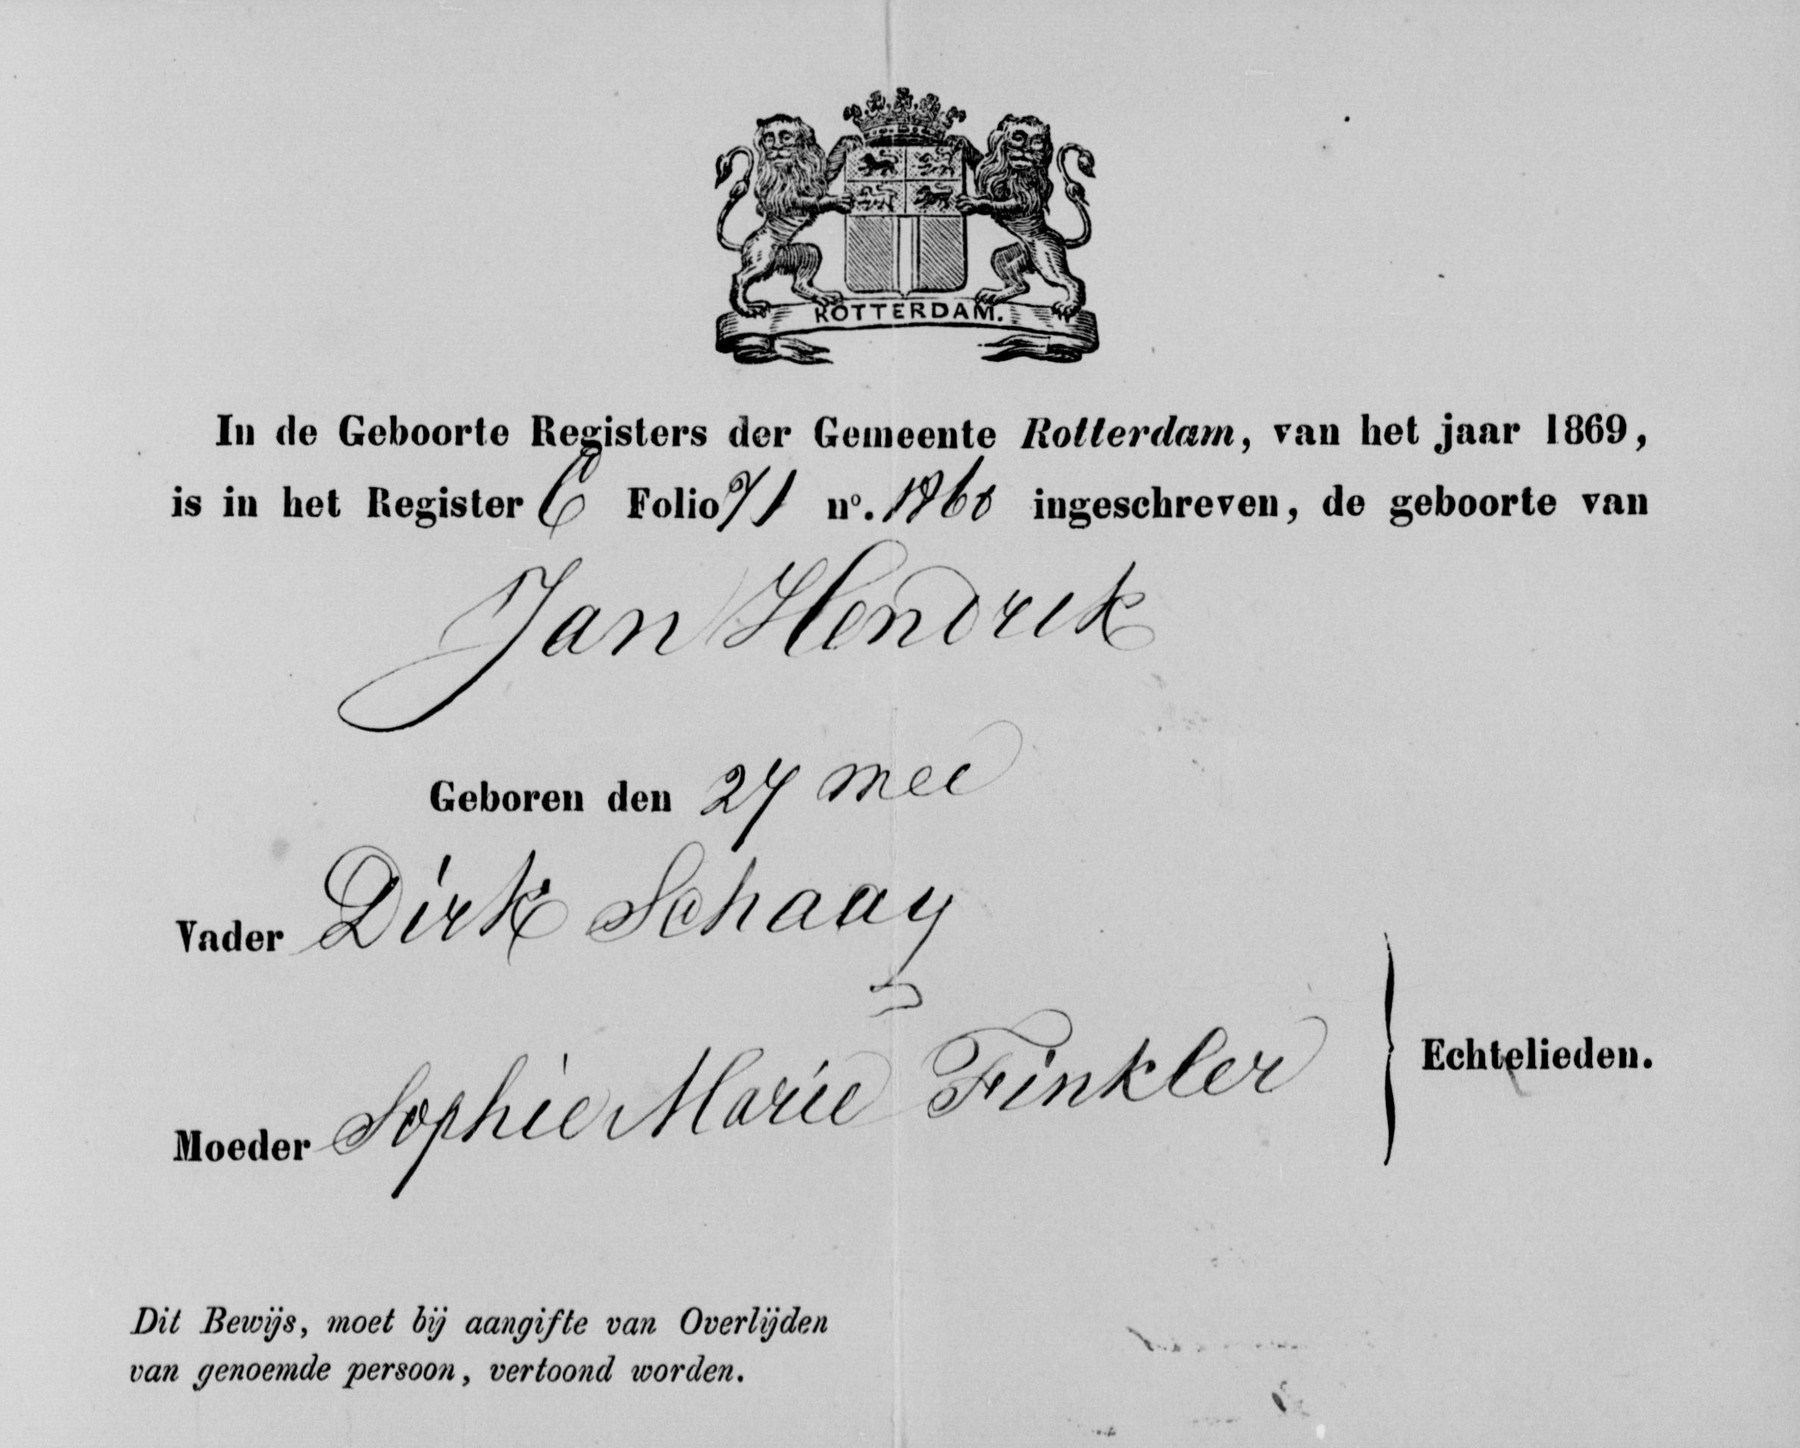 ROTTERDAM.
In de Geboorte Registers der Gemeente Rotterdam, van het jaar 1869,
is in het Register C Folio 71 nº. 1860 ingeschreven, de geboorte van
Jan Hendrik
Geboren den 27 mei
Vader Dirk Schaay
Moeder Sophie Marie Finkler
Echtelieden.
Dit Bewijs, moet bij aangifte van Overlijden
van genoemde persoon, vertoond worden.